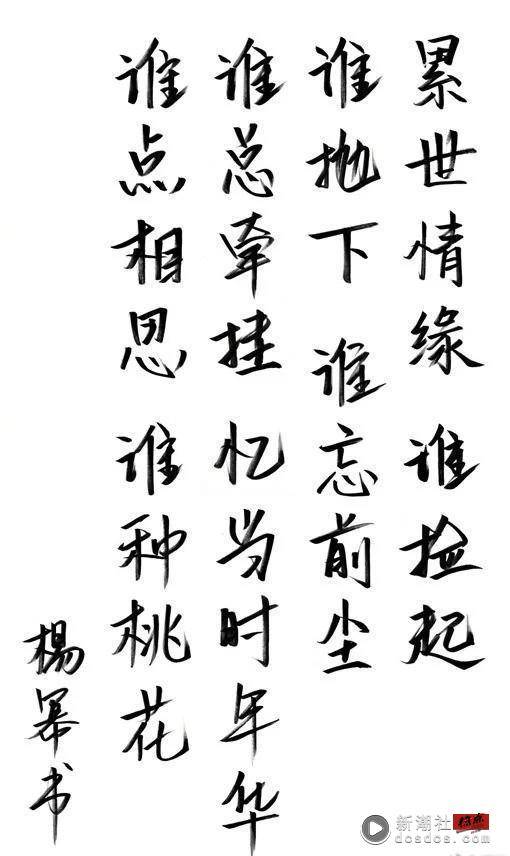 累世情缘 谁捡起
谁抛下 谁忘前尘
谁总牵挂 忆当时年华
谁点相思 谁种桃花
楊幂书
新潮社
dcsdcs.com